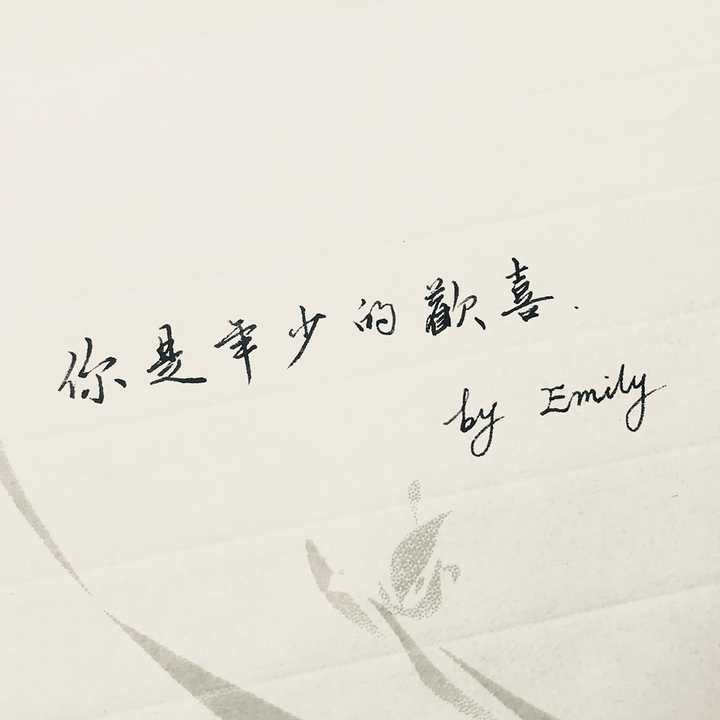 你是年少的歡喜.
by Emily